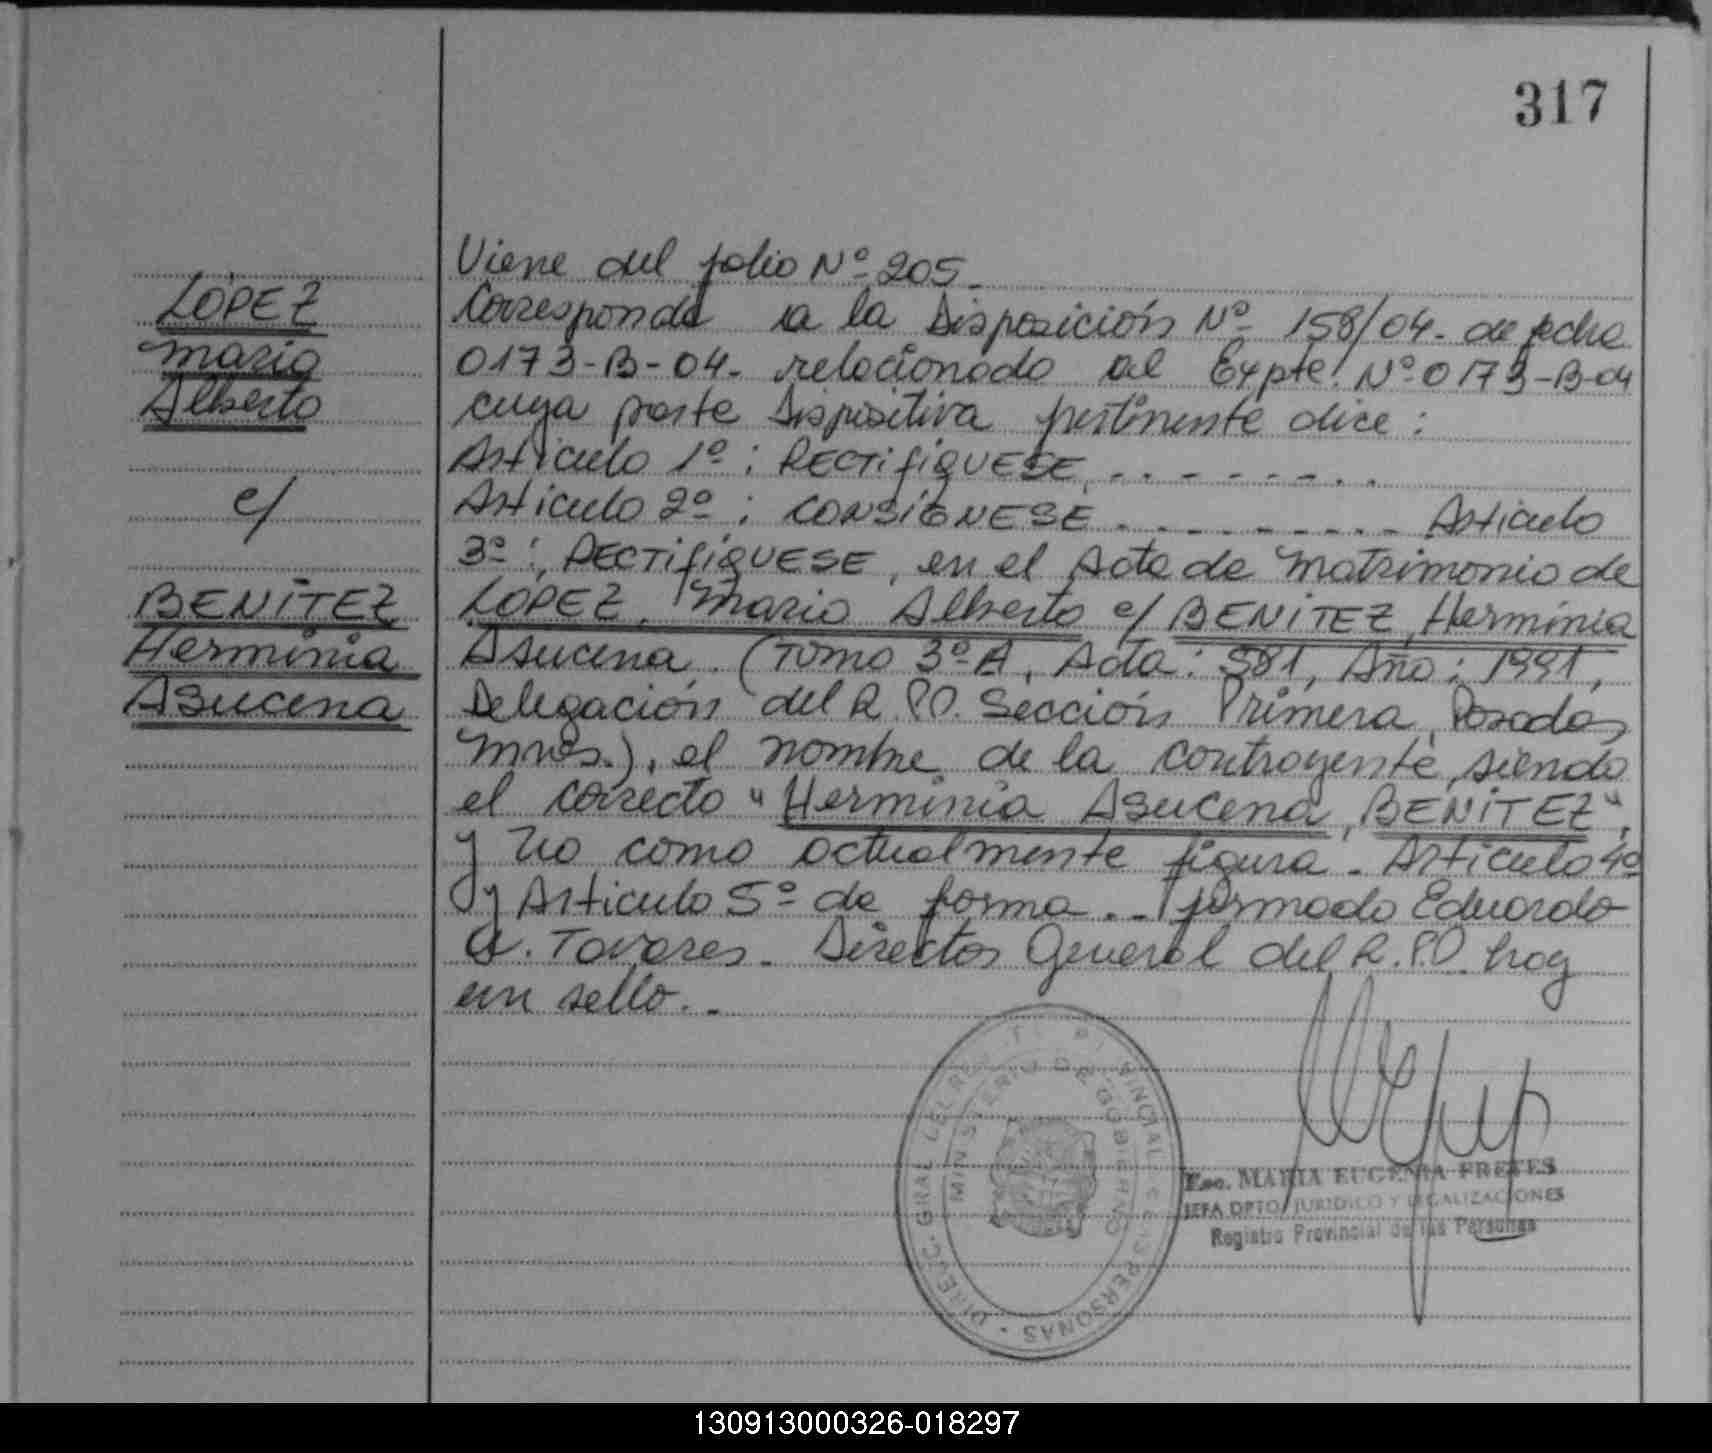 317
LÓPEZ
Mario
Alberto
c/
BENÍTEZ
Herminia
Asucena
Viene del folio Nº 205.
Corresponde a la Disposición Nº 158/04- de fecha
0173-B-04- relacionado al Expte. Nº 0173-B-04
cuya parte Dispositiva pertinente dice:
Artículo 1º: RECTIFÍQUESE, . . - - - - . .
Artículo 2º: CONSÍGNESE . . - - - - . . - Artículo
3º: RECTIFÍQUESE, en el Acta de Matrimonio de
LÓPEZ, Mario Alberto c/ BENÍTEZ, Herminia
Asucena, (Tomo 3º A, Acta: 581, Año: 1991,
Delegación del R.P.P. Sección Primera, Posadas,
Mnes.), el nombre de la contrayente, siendo
el correcto "Herminia Asucena, BENÍTEZ",
y no como actualmente figura. Artículo 4º
y Artículo 5º de forma.- firmado Eduardo
A. Tavares. Director General del R.P.P. hay
un sello.-
DIRECC. GRAL DEL REGIST. PROVINCIAL DE LAS PERSONAS
MINISTERIO DE GOBIERNO
Esc. MARIA EUGENIA FRETES
JEFA DPTO. JURIDICO Y LEGALIZACIONES
Registro Provincial de las Personas
130913000326-018297